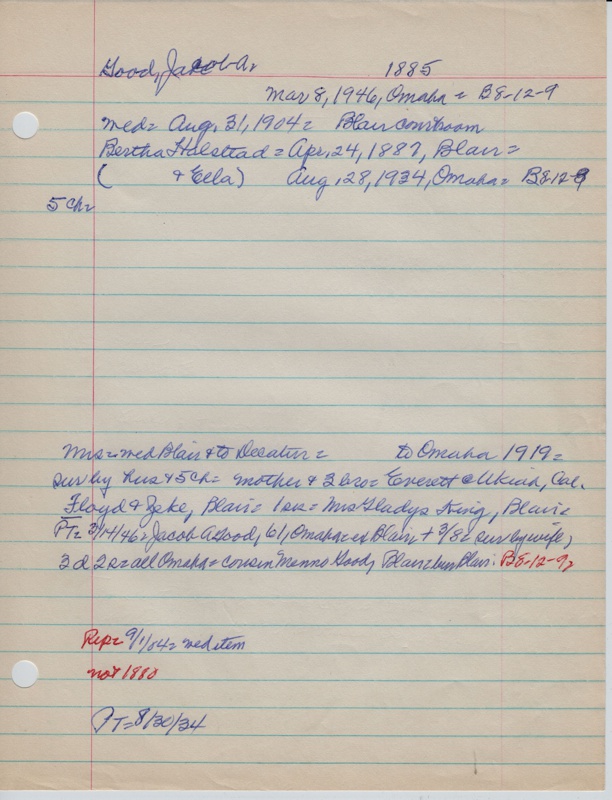 Good, Jacob A. 1885
Mar 8, 1946, Omaha = B8-12-9
med= Aug. 31, 1904= Blair courtroom
Bertha Halstead = Apr. 24, 1887, Blair=
( & Ella) Aug. 28, 1934, Omaha= B8-12-8
5 ch=
Mrs = med Blair & to Decatur = to Omaha 1919=
sur by hus & 5 ch= mother & 3 bro= Everett @ Ukiah, Cal.
Floyd & Zeke, Blair= 1 sis= Mrs Gladys King, Blair=
PT= 3/14/46= Jacob A Good, 61, Omaha= ex Blair, + 3/8= sur by wife,
3 d 2 s= all Omaha= cousin Menno Good, Blair= bur Blair. B8-12-9,
Rep= 9/1/04= med item
not 1880
PT= 8/30/34